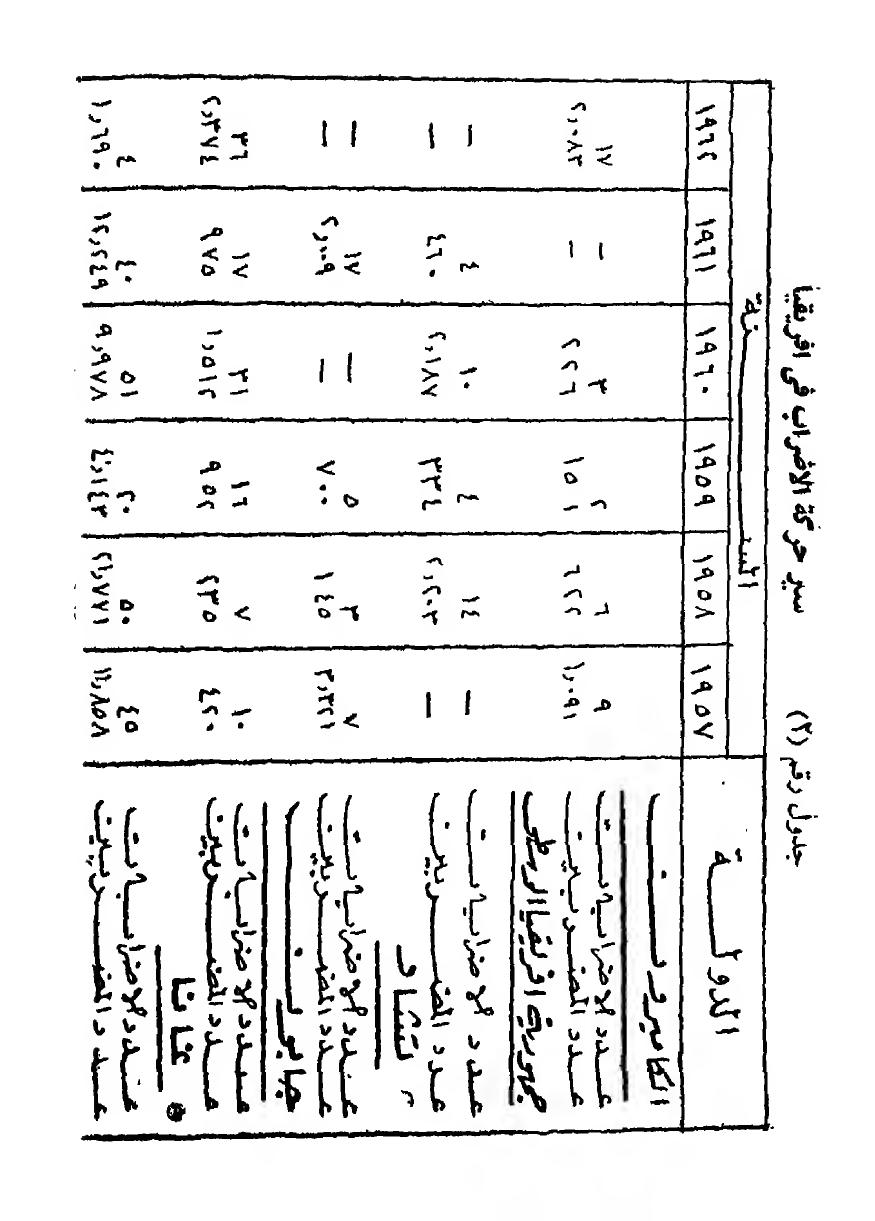 جدول رقم (٢) سير حركة الاضراب فى افريقيا
الدولة السنة
١٩٥٧ ١٩٥٨ ١٩٥٩ ١٩٦٠ ١٩٦١ ١٩٦٢
الكاميرون
عدد الاضرابات ٩ ٦ ٢ ٣ — ١٧
عدد المضربين ١,٠٩١ ٦٢٢ ١٥١ ٢٢٦ — ٢,٠٨٣
جمهورية افريقيا الوسطى
عدد الاضرابات — ١٤ ٤ ١٠ ٤ —
عدد المضربين — ٢,٢٠٣ ٣٣٤ ٢,١٨٧ ٤٦٠ —
تشاد
عدد الاضرابات ٧ ٣ ٥ — ١٧ —
عدد المضربين ٣,٣٢١ ١٤٥ ٧٠٠ — ٢,٠٠٩ —
جابون
عدد الاضرابات ١٠ ٧ ١٦ ٣١ ١٧ ٣٦
عدد المضربين ٤٢٠ ٢٣٥ ٩٥٢ ١,٥١٢ ٩٧٥ ٢,٣٧٤
غانا
عدد الاضرابات ٤٥ ٥٠ ٢٠ ٥١ ٤٠ ٤
عدد المضربين ١١,٨٥٨ ٢١,٧٧١ ٤,١٤٣ ٩,٩٧٨ ١٢,٢٤٩ ١,٦٩٠